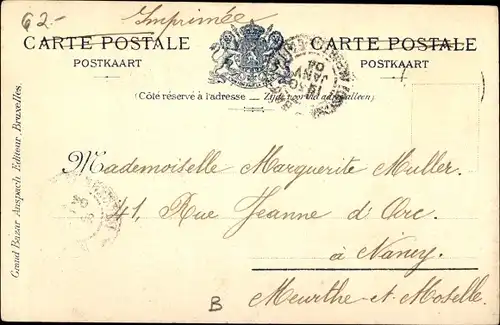 62.-
Imprimée
CARTE POSTALE CARTE POSTALE
POSTKAART POSTKAART
(Côté réservé à l'adresse — Zijde voor het adres alleen)
JANV
04
Mademoiselle Marguerite Muller.
41, Rue Jeanne d'Arc.
à Nancy.
Meurthe-et-Moselle.
B
Grand Bazar Anspach Editeur, Bruxelles.